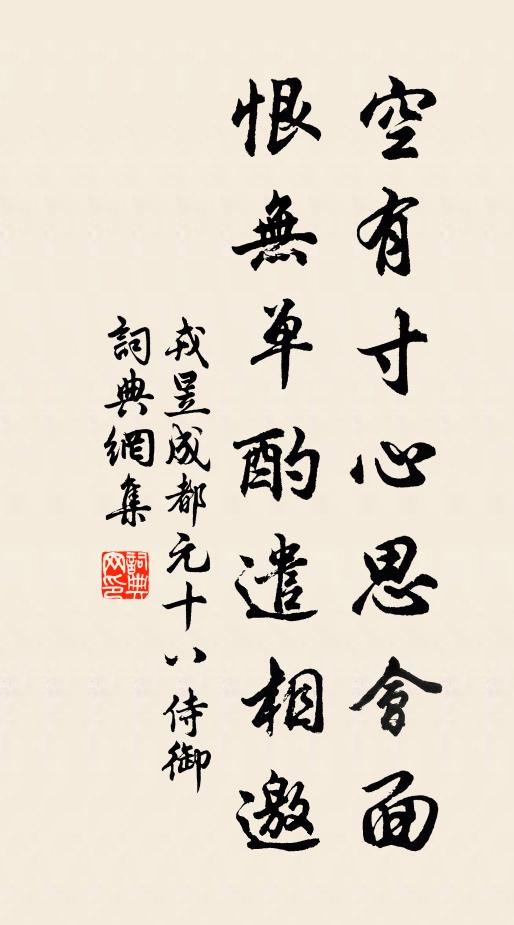 空有寸心思會面
恨無单酌遣相邀
戎昱成都元十八侍御
詞典網集
詞典
网印